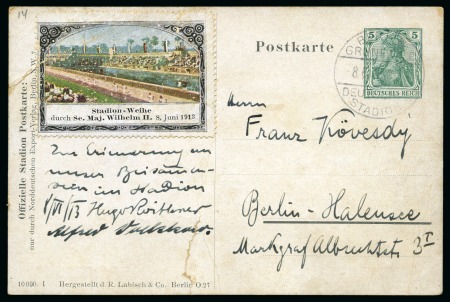 14
Postkarte
5 5
DEUTSCHES REICH
GR
8.
DEU
STADIO
Stadion-Weihe
durch Se. Maj. Wilhelm II. 8. Juni 1913
Offizielle Stadion Postkarte:
nur durch Norddeutschen Export-Verlag, Berlin N.W. 7.
Herrn
Franz Kövesdy
Berlin-Halensee
Markgraf Albrechtstr. 3 I
Zur Erinnerung an
unser Beisammen-
sein im Stadion
8/VI/13 Hugo
Alfred
10 000. 4 Hergestellt d. R. Labisch & Co. Berlin O.27